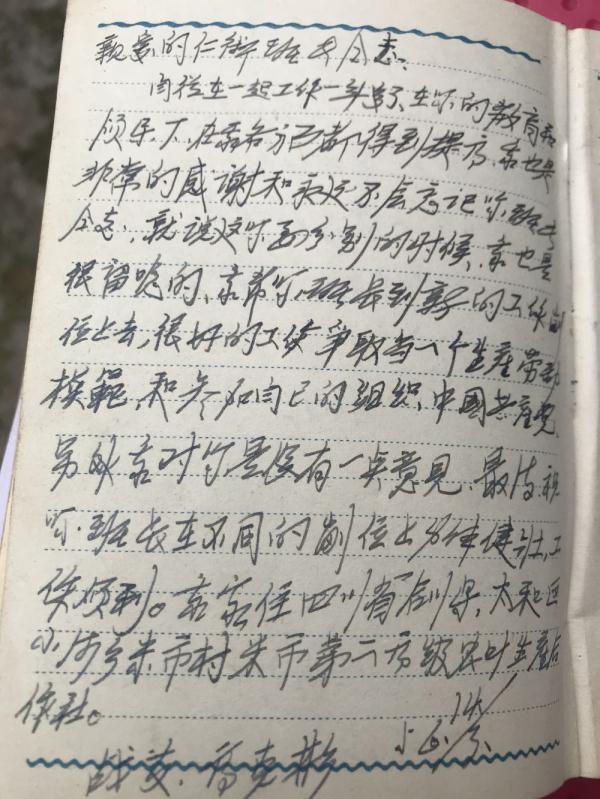 亲爱的仁祥班长同志：
同程在一起工作一头年了，在你的教育和
领导下，在各各方己都得到提高，我也是
非常的感谢和永远不会忘记你班长
同志，就说这你要分别的时候，我也是
很留恋的，我希你班长到新的工作岗
位上去，很好的工作争取当一个生产劳动
模範，和参加自已的组织，中國共産党。
另外我对你是没有一点意見，最后祝
你班长在不同的崗位上身体健壮，工
作顺利。我家住四川省县，太和区
小乡米市村米市第二高级农叶生産合
作社。
战友：克彬